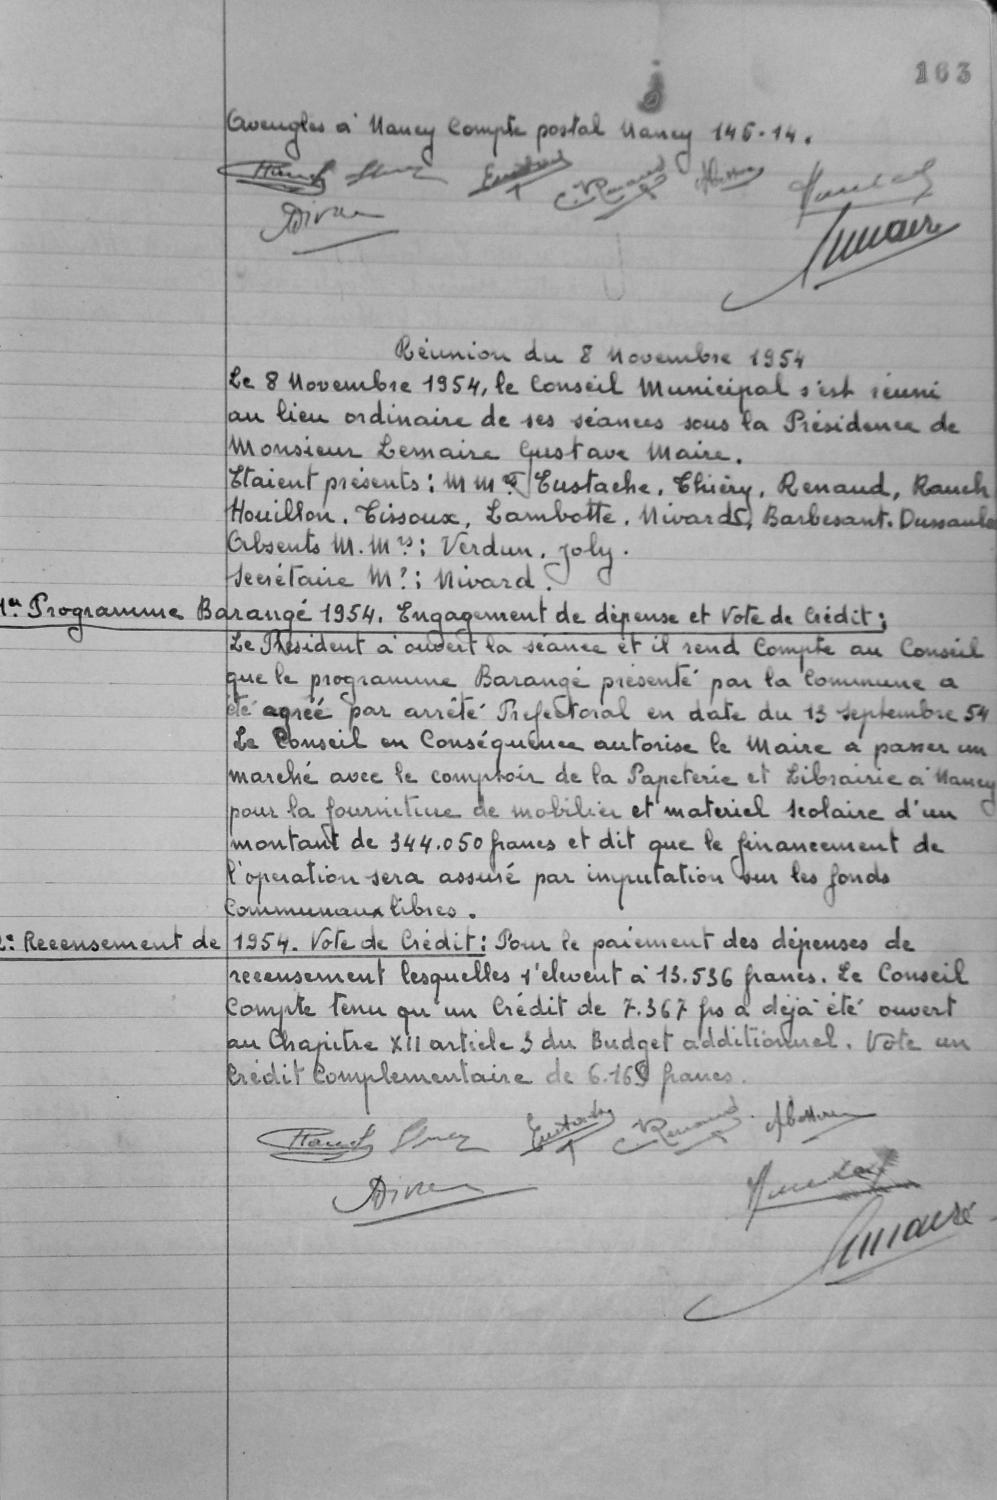 163
Aveugles à Nancy Compte postal Nancy 145-14.
Rauch Eustache Renaud
Nivard
Lemaire
Réunion du 8 Novembre 1954
Le 8 Novembre 1954, le Conseil Municipal s'est réuni
au lieu ordinaire de ses séances sous la Présidence de
Monsieur Lemaire Gustave Maire.
Etaient présents : M M rs Eustache, Thiéry, Renaud, Rauch
Houillon, Tissoux, Lambotte, Nivard, Barbesant. Dussaule
Absents M. Mrs : Verdun, Joly.
Secrétaire Mr : Nivard.
1er Programme Barangé 1954. Engagement de dépense et Vote de Crédit :
Le Président a ouvert la séance et il rend Compte au Conseil
que le programme Barangé présenté par la Commune a
été agréé par arrêté Prefectoral en date du 13 septembre 54
Le Conseil en Conséquence autorise le Maire à passer un
marché avec le comptoir de la Papeterie et Librairie à Nancy
pour la fourniture de mobilier et materiel scolaire d'un
montant de 344.050 francs et dit que le financement de
l'operation sera assuré par imputation sur les fonds
Communaux libres.
2: Recensement de 1954. Vote de Crédit : Pour le paiement des dépenses de
recensement lesquelles s'elevent à 13.536 francs. Le Conseil
Compte tenu qu'un Crédit de 7.367 frs a déjà été ouvert
au Chapitre XII article 3 du Budget additionnel. Vote un
Crédit Complementaire de 6.169 francs.
Rauch Eustache Renaud
Nivard
Lemaire